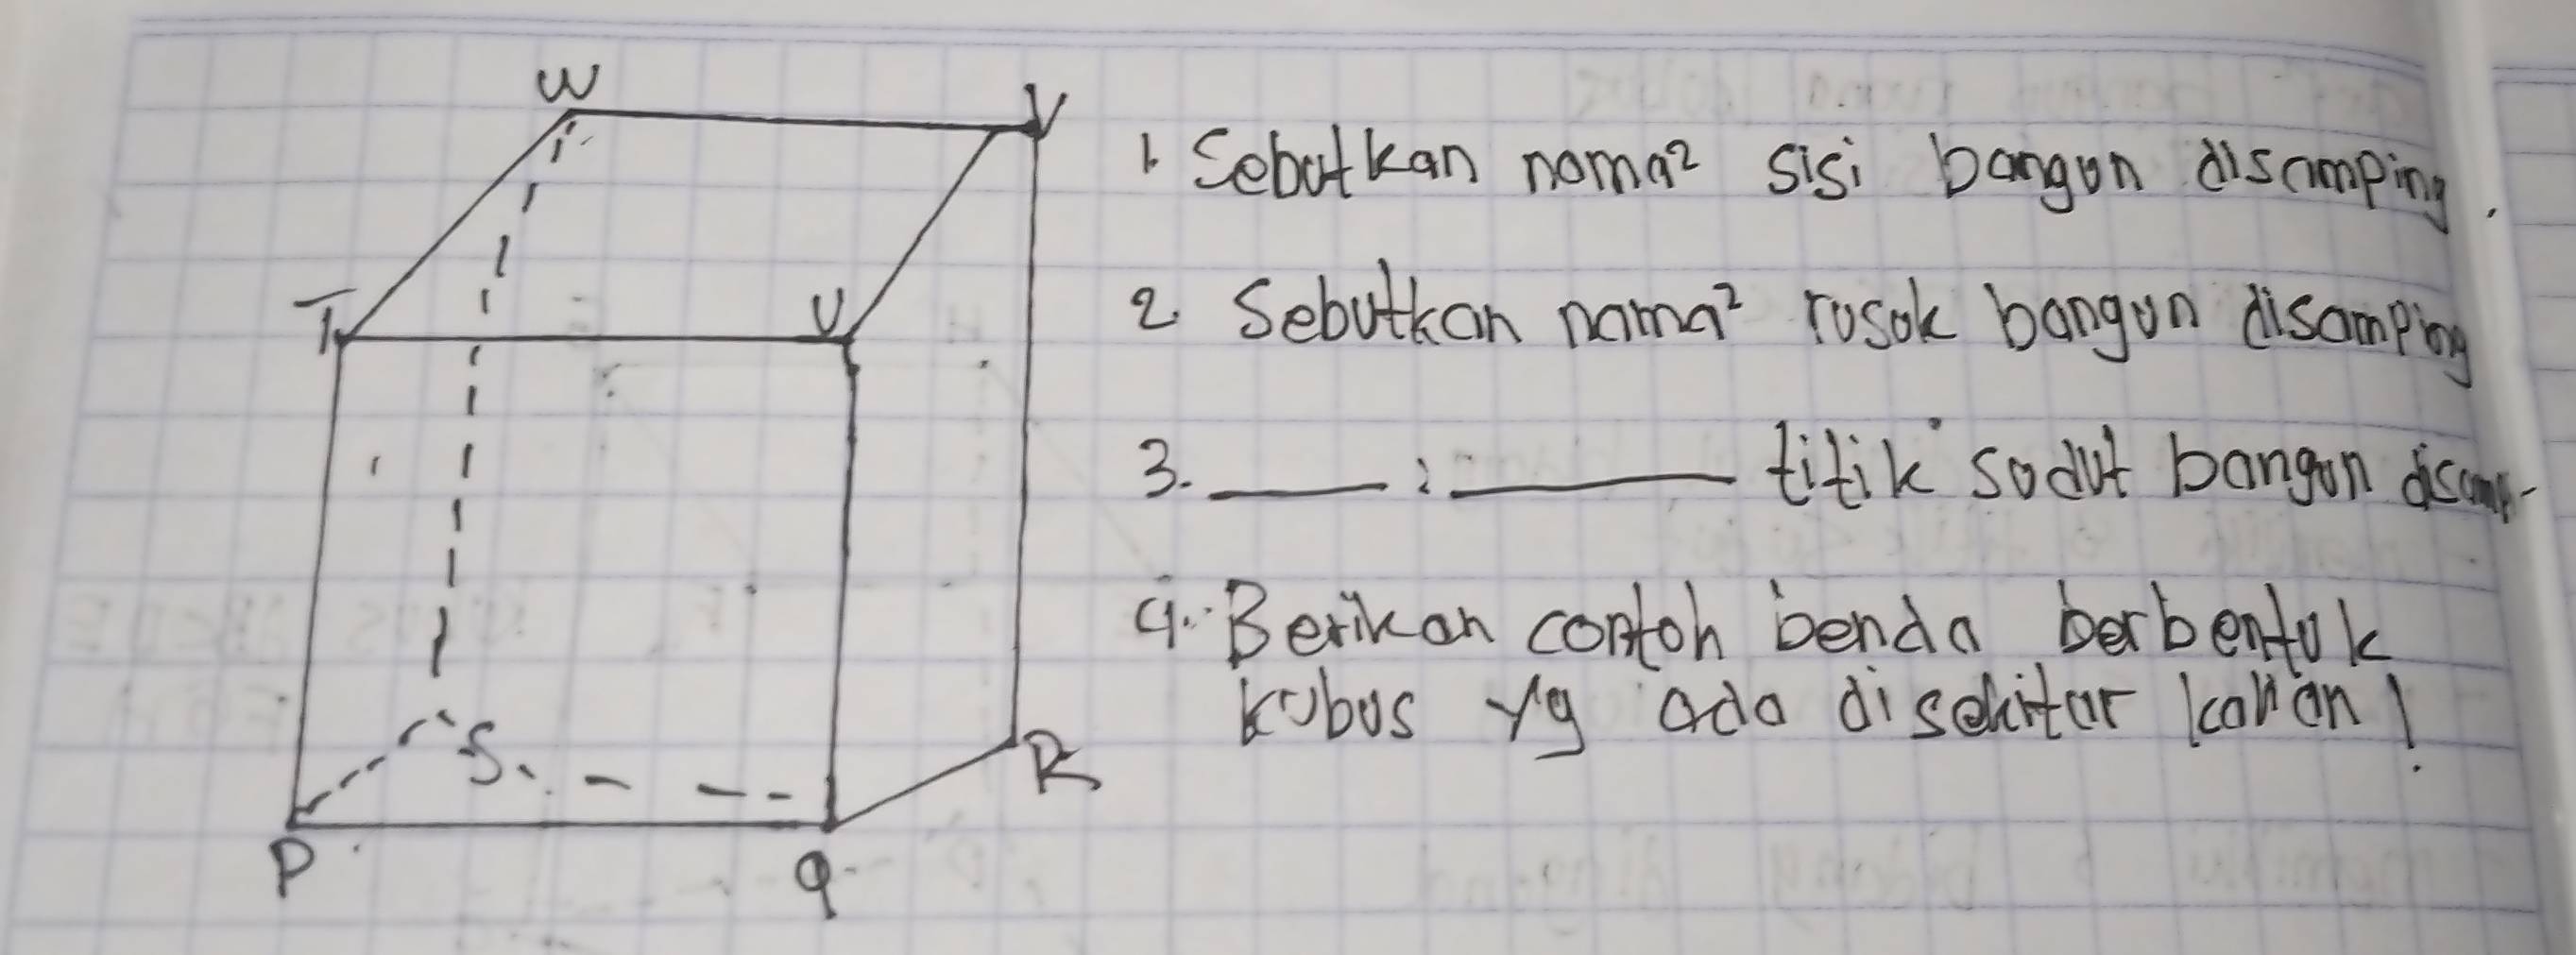 W
V
T
U
S
R
P
Q
1. Sebutkan nama² sisi bangun disamping.
2. Sebutkan nama² rusuk bangun disamping
3. ____ : ____ titik sudut bangun disamp-
4. Berikan contoh benda berbentuk
kubus yg ada disekitar kalian!